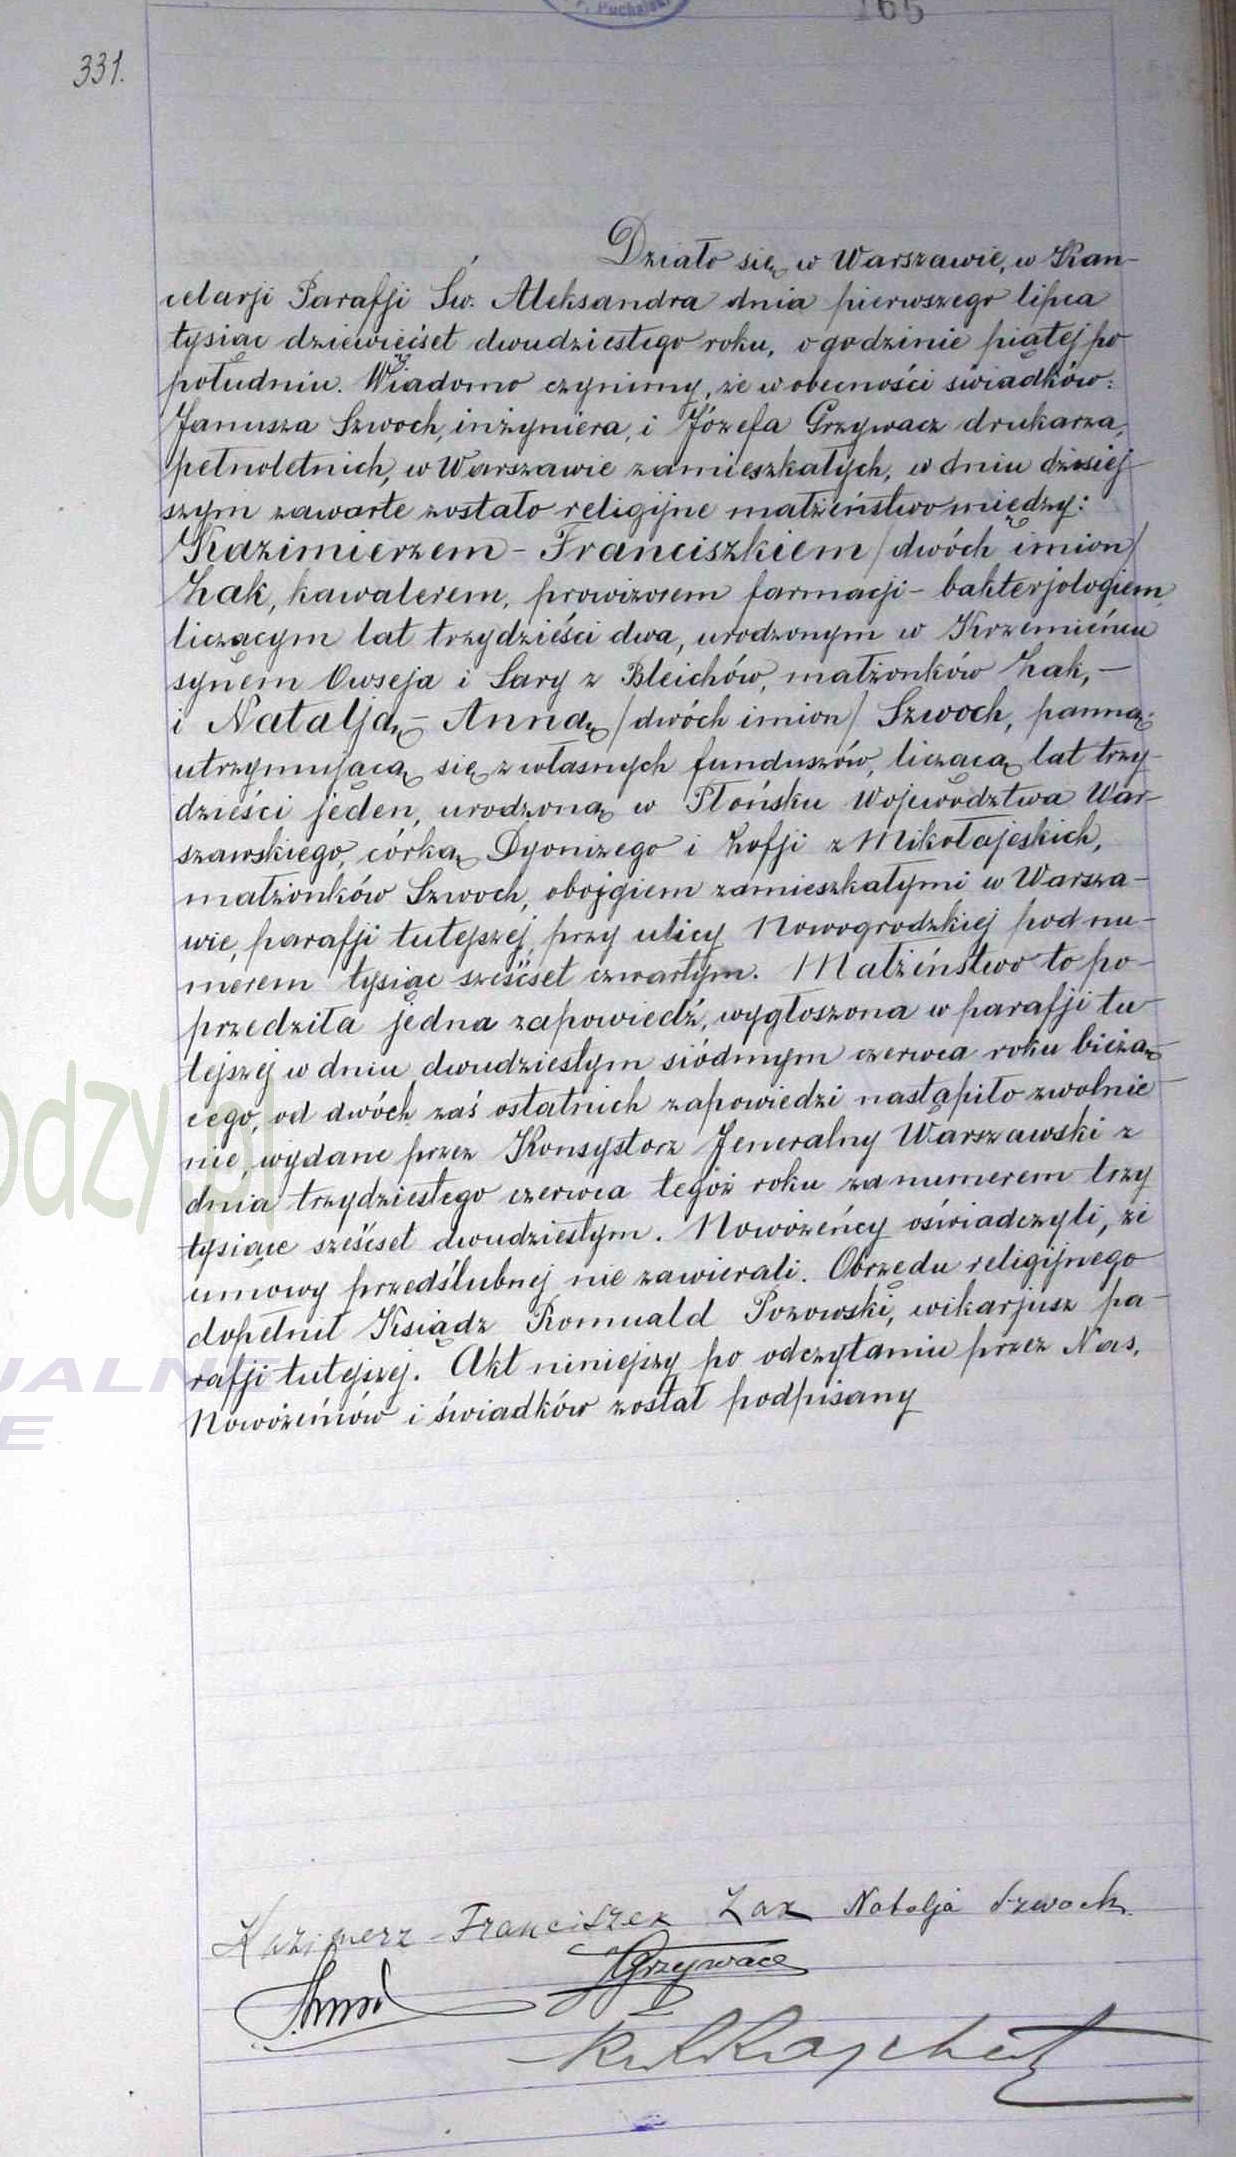 r. Puchalski
165
331.
Działo się w Warszawie, w Kan-
celarji Parafji Św. Aleksandra dnia pierwszego lipca
tysiąc dziewięćset dwudziestego roku, o godzinie piątej po
południu. Wiadomo czynimy, że w obecności świadków:
Janusza Szwoch, inżyniera, i Józefa Grzywacz drukarza,
pełnoletnich, w Warszawie zamieszkałych, w dniu dzisiej-
szym zawarte zostało religijne małżeństwo między:
Kazimierzem - Franciszkiem /dwóch imion/
Zak, kawalerem, prowizorem farmacji - bakterjologiem,
liczącym lat trzydzieści dwa, urodzonym w Krzemieńcu
synem Owseja i Sary z Bleichów, małżonków Zak, —
i Natalją - Anną /dwóch imion/ Szwoch, panną,
utrzymującą się z własnych funduszów, liczącą lat trzy-
dzieści jeden, urodzoną w Płońsku Województwa War-
szawskiego, córką Dyonizego i Zofji z Mikołajeskich,
małżonków Szwoch, obojgiem zamieszkałymi w Warsza-
wie, parafji tutejszej, przy ulicy Nowogrodzkiej pod nu-
merem tysiąc sześćset czwartym. Małżeństwo to po-
przedziła jedna zapowiedź, wygłoszona w parafji tu-
tejszej w dniu dwudziestym siódmym czerwca roku bieżą-
cego, od dwóch zaś ostatnich zapowiedzi nastąpiło zwolnie-
nie, wydane przez Konsystorz Jeneralny Warszawski z
dnia trzydziestego czerwca tegoż roku za numerem trzy
tysiące sześćset dwudziestym. Nowożeńcy oświadczyli, że
umowy przedślubnej nie zawierali. Obrzędu religijnego
dopełnił Ksiądz Romuald Pozowski, wikarjusz pa-
rafji tutejszej. Akt niniejszy po odczytaniu przez Nas,
Nowożeńców i świadków został podpisany
Kazimierz - Franciszek Zak Natalja Szwoch
JGrzywacz
odzy.pl
UALNE
E